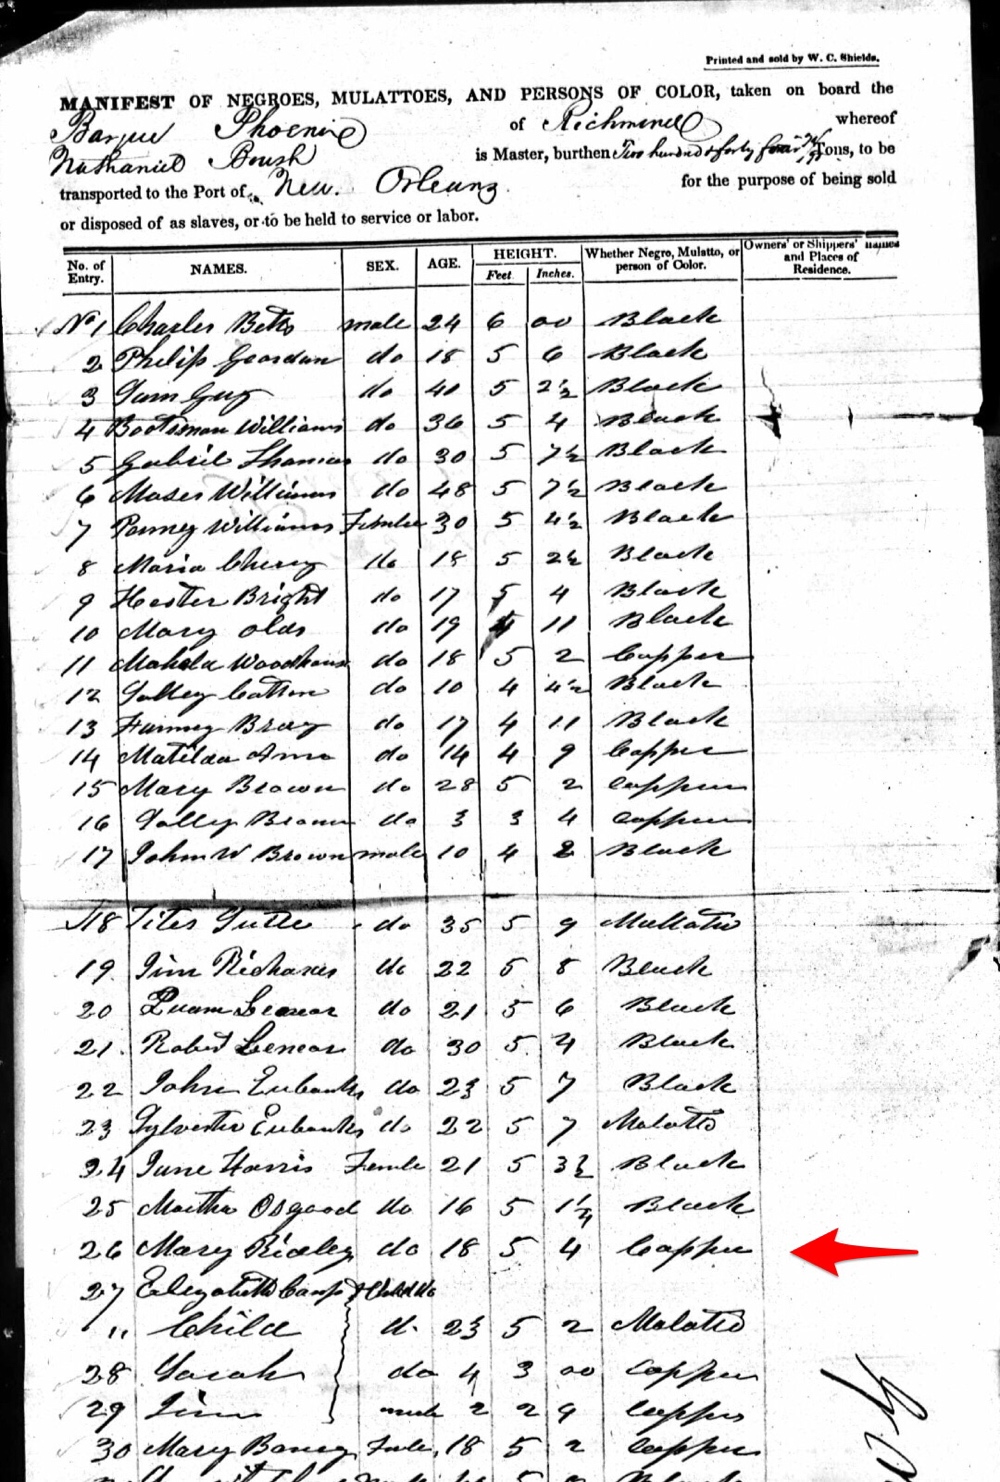 Printed and sold by W. C. Shields.
MANIFEST OF NEGROES, MULATTOES, AND PERSONS OF COLOR, taken on board the
Barque Phoenix of Richmond whereof
Nathaniel Boush is Master, burthen Two hundred & forty four Tons, to be
transported to the Port of New Orleans for the purpose of being sold
or disposed of as slaves, or to be held to service or labor.
No. of Entry. NAMES. SEX. AGE. HEIGHT. Feet. Inches. Whether Negro, Mulatto, or person of Color. Owners' or Shippers' names and Places of Residence.
No 1 Charles Betts male 24 6 00 Black
2 Philip Geordan do 18 5 6 Black
3 Sam Guy do 40 5 2½ Black
4 Boatsman Williams do 36 5 4 Black
5 Gabril Thomas do 30 5 7½ Black
6 Moses Williams do 48 5 7½ Black
7 Williams Female 30 5 4½ Black
8 Maria Cherry do 18 5 2½ Black
9 Hester Bright do 17 5 4 Black
10 Mary Olds do 19 4 11 Black
11 Mahala Woodhous do 18 5 2 Copper
12 Cotton do 10 4 4½ Black
13 Fanney Bray do 17 4 11 Black
14 Matilda do 14 4 9 Copper
15 Mary Brown do 28 5 2 Copper
16 Brown do 3 3 4 Copper
17 John W Brown male 10 4 2 Black
18 Tites do 35 5 9 Mullatto
19 Jim Richards do 22 5 8 Black
20 do 21 5 6 Black
21 Robert Lemar do 30 5 4 Black
22 John Eubanks do 23 5 7 Black
23 Sylvester Eubanks do 22 5 7 Malatto
24 Jane Harris Femle 21 5 3½ Black
25 Martha Osgood do 16 5 1¼ Black
26 Mary Ridley do 18 5 4 Copper
27 Elizabeth Camp & Child
" Child d. 23 5 2 Malatto
28 Sarah do 4 3 00 Copper
29 Jim male 2 2 9 Copper
30 Mary 18 5 2 Copper